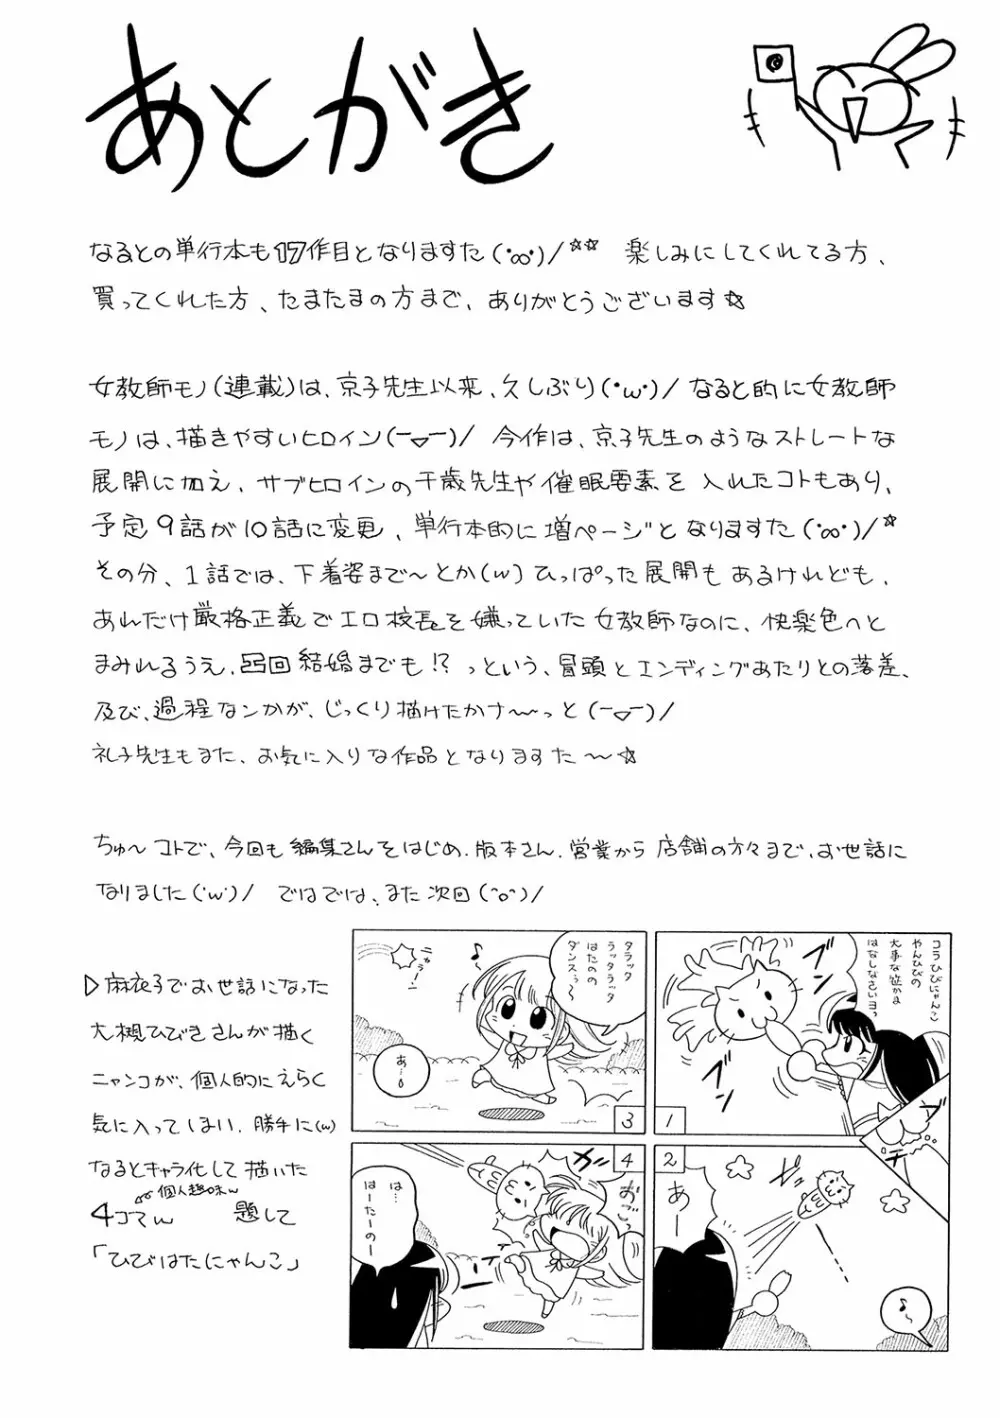 あとがき
なるとの単行本も17作目となりますた(･∞･)/☆☆ 楽しみにしてくれてる方、
買ってくれた方、たまたまの方まで、ありがとうございます☆
女教師モノ(連載)は、京子先生以来、久しぶり(･ω･)/ なると的に女教師
モノは、描きやすいヒロイン(ー▽ー)/ 今作は、京子先生のようなストレートな
展開に加え、サブヒロインの千歳先生や催眠要素を入れたコトもあり、
予定9話が10話に変更、単行本的に増ページとなりますた(･∞･)/☆
その分、1話では、下着姿まで〜とか(w)ひっぱった展開もあるけれども、
あれだけ厳格正義でエロ校長を嫌っていた女教師なのに、快楽色へと
まみれるうえ、今回結婚までも!? っという、冒頭とエンディングあたりとの落差、
及び、過程なンかが、じっくり描けたかナ〜〜っと(ー▽ー)/
礼子先生もまた、お気に入りな作品となりますた〜☆
ちゅ〜コトで、今回も編集さんをはじめ、版本さん、営業から店舗の方々まで、お世話に
なりました(･ω･)/ ではでは、また次回(^o^)/
▷麻衣子でお世話になった
大槻ひびきさんが描く
ニャンコが、個人的にえらく
気に入ってしまい、勝手に(w)
なるとキャラ化して描いた
個人趣味w
4コマん 題して
「ひびはたにゃんこ」
コラひびにゃんこ
やんひびの
大事な
はなしなさいヨっ
ブン
ブン
1
2
あー
♪
タラッタ
ラッタラッタ
はたのの
ダンスぅ〜
♪
あ…
3
4
ガッ
おごっ
は…
はーたーのー